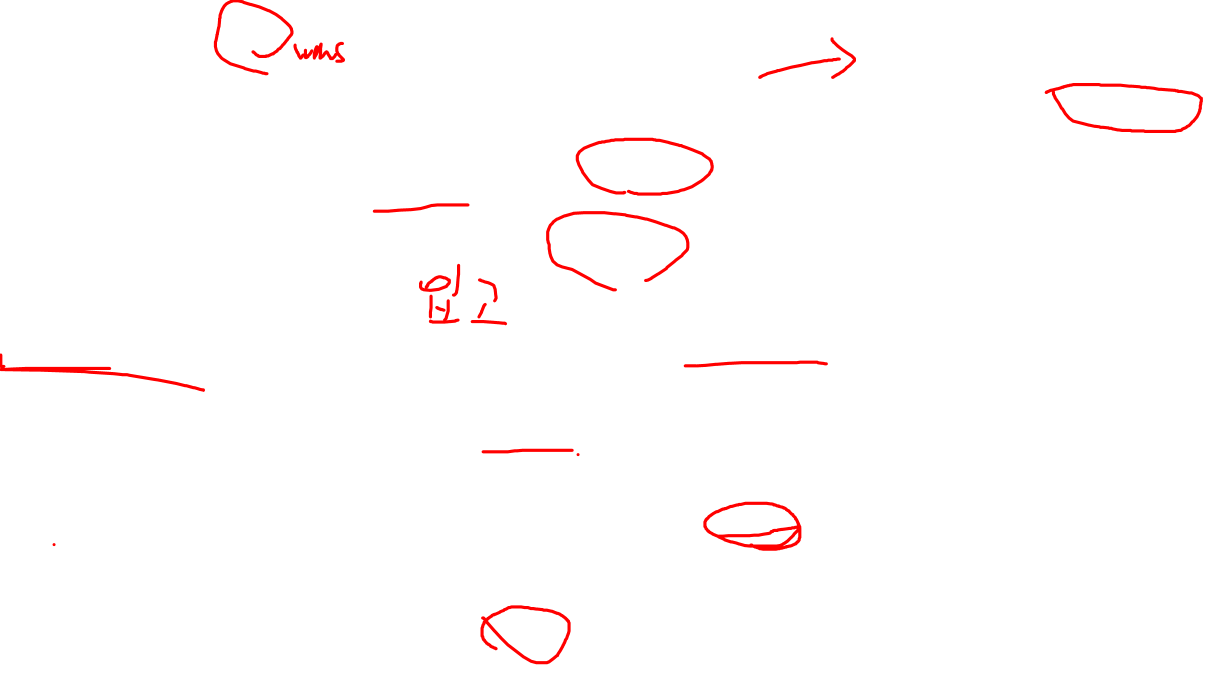 wms
입고